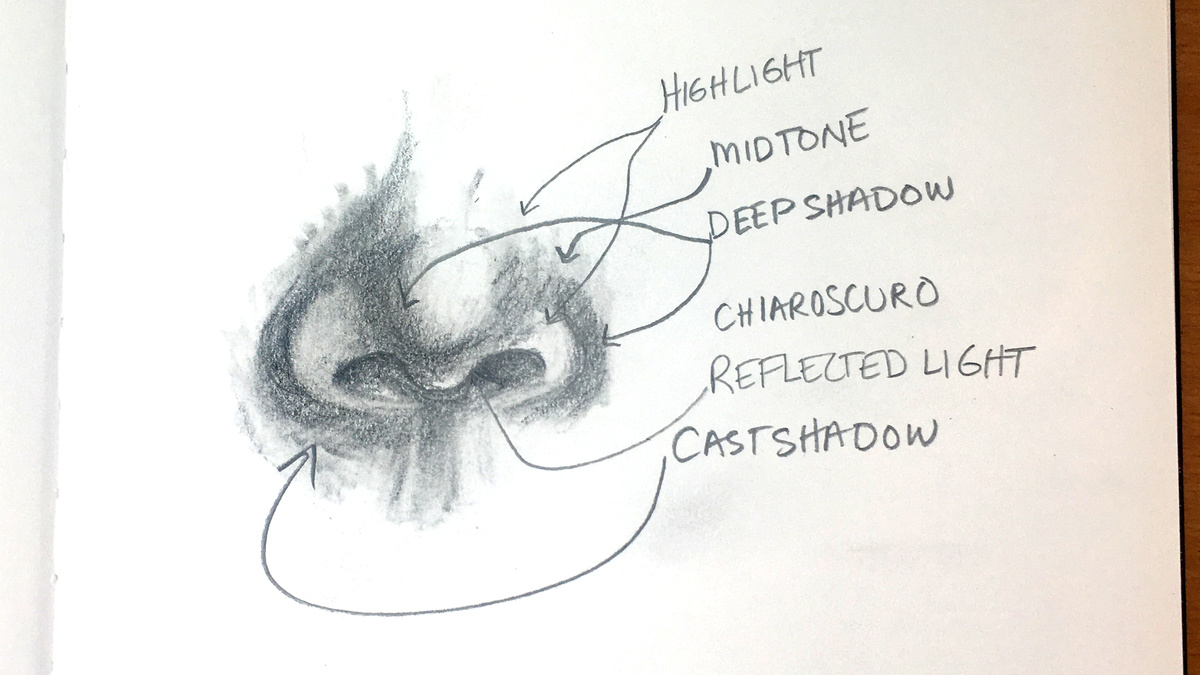 HIGHLIGHT
MIDTONE
DEEP SHADOW
CHIAROSCURO
REFLECTED LIGHT
CAST SHADOW